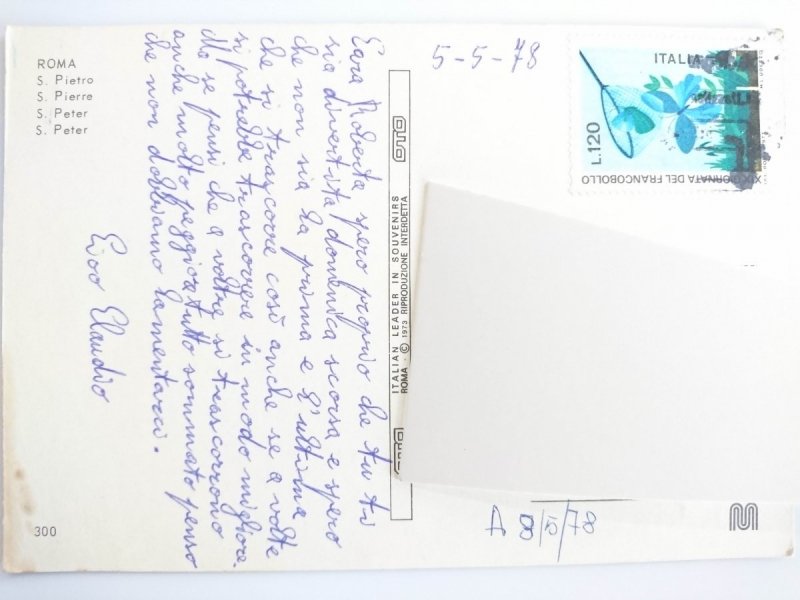 ROMA
S. Pietro
S. Pierre
S. Peter
S. Peter
5-5-78
Cara Roberta spero proprio che tu ti
sia divertita domenica scorsa e spero
che non sia la prima e l'ultima
che si trascorre così anche se a volte
si potrebbe trascorrere in modo migliore.
Ma se pensi che a voltre si trascorrono
anche molto peggio, tutto sommato penso
che non dobbiamo lamentarci.
Ciao Claudio
300
OTO
ITALIAN LEADER IN SOUVENIRS
ROMA - © 1973 RIPRODUZIONE INTERDETTA
ITALIA
L.120
GIORNATA DEL FRANCOBOLLO
A 8/5/78